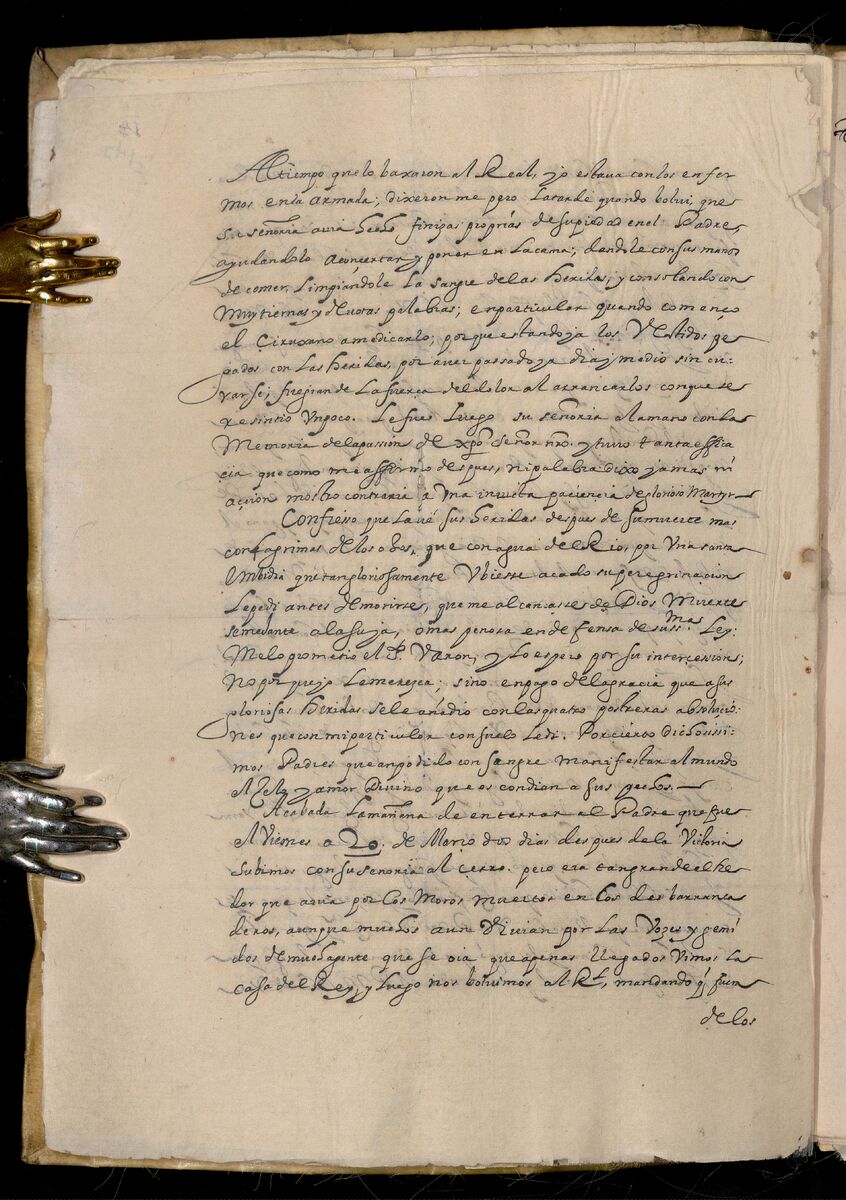 Al tiempo que lo baxaron al Real, yo estava con los enfer
mos en la armada; dixeron me pero la tarde quando bolvi, que
su señoria avia hecho finezas proprias de su piedad en el Padre,
ayudandolo a concertar y poner en la cama; dandole con sus manos
de comer, limpiandole la sangre de las heridas; y consolandolo con
muy tiernas y devotas palabras; en particular quando començo
el Çirujano a medicarlo; porque estando ya los Vestidos pe
gados con las heridas, por aver passado ya dia y medio sin cu-
rarse; fue grande la fuerça del dolor al arrancarlos con que se
resintio un poco. Le fue luego su señoria a la mano con la
Memoria de la passion de xpo señor nro. y tuvo tanta effica
cia que como me affirmo despues, ni palabra dixo jamas ni
açcion mostro contraria a una invicta paciencia de glorioso Martyr
Confiesso que lavé sus heridas despues de su muerte mas
con lagrimas de los ojos, que con agua del Rio, por una santa
Embidia que tan gloriosamente Ubiesse acabado su peregrinacion
Le pedi antes de morirse, que me alcançasse de Dios Muerte
semejante a la suya, o mas penosa en defensa de su sma. Ley:
Melo prometio el Sto. Varon; y lo espero por su intercession;
No por que yo le meresca; sino en pago de la gracia que a sus
gloriosas heridas se le añedio con las quatro postreras absolucio-
nes que con mi particular consuelo le di. Por cierto dichosissi-
mos Padres que an podido con sangre manifestar al mundo
el Zelo y amor Divino que escondian a sus pechos.
Acabada la mañana de enterrar al Padre que fue
el Viernes a 20. de Março dos dias despues de la Victoria
subimos con su señoria al cerro. pero era tan grande el he
dor que avia por los Moros muertos en los desbarranca
deros, aunque muchos aun Vivian por las Vozes y gemi
dos de mucha gente que se oia que apenas llegados Vimos la
casa del Rey, y luego nos bolvimos al Rl, mandando q fuen
de los